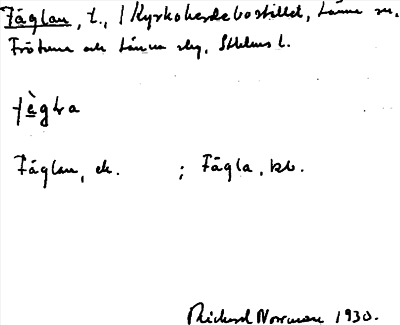 Fäglan, t., / Kyrkoherdebostället, Länna sn,
Frötuna och Länna skg, Sthlms l.
fègla
Fäglan, ek. ; Fägla, kb.
Rickard Norrman 1930.